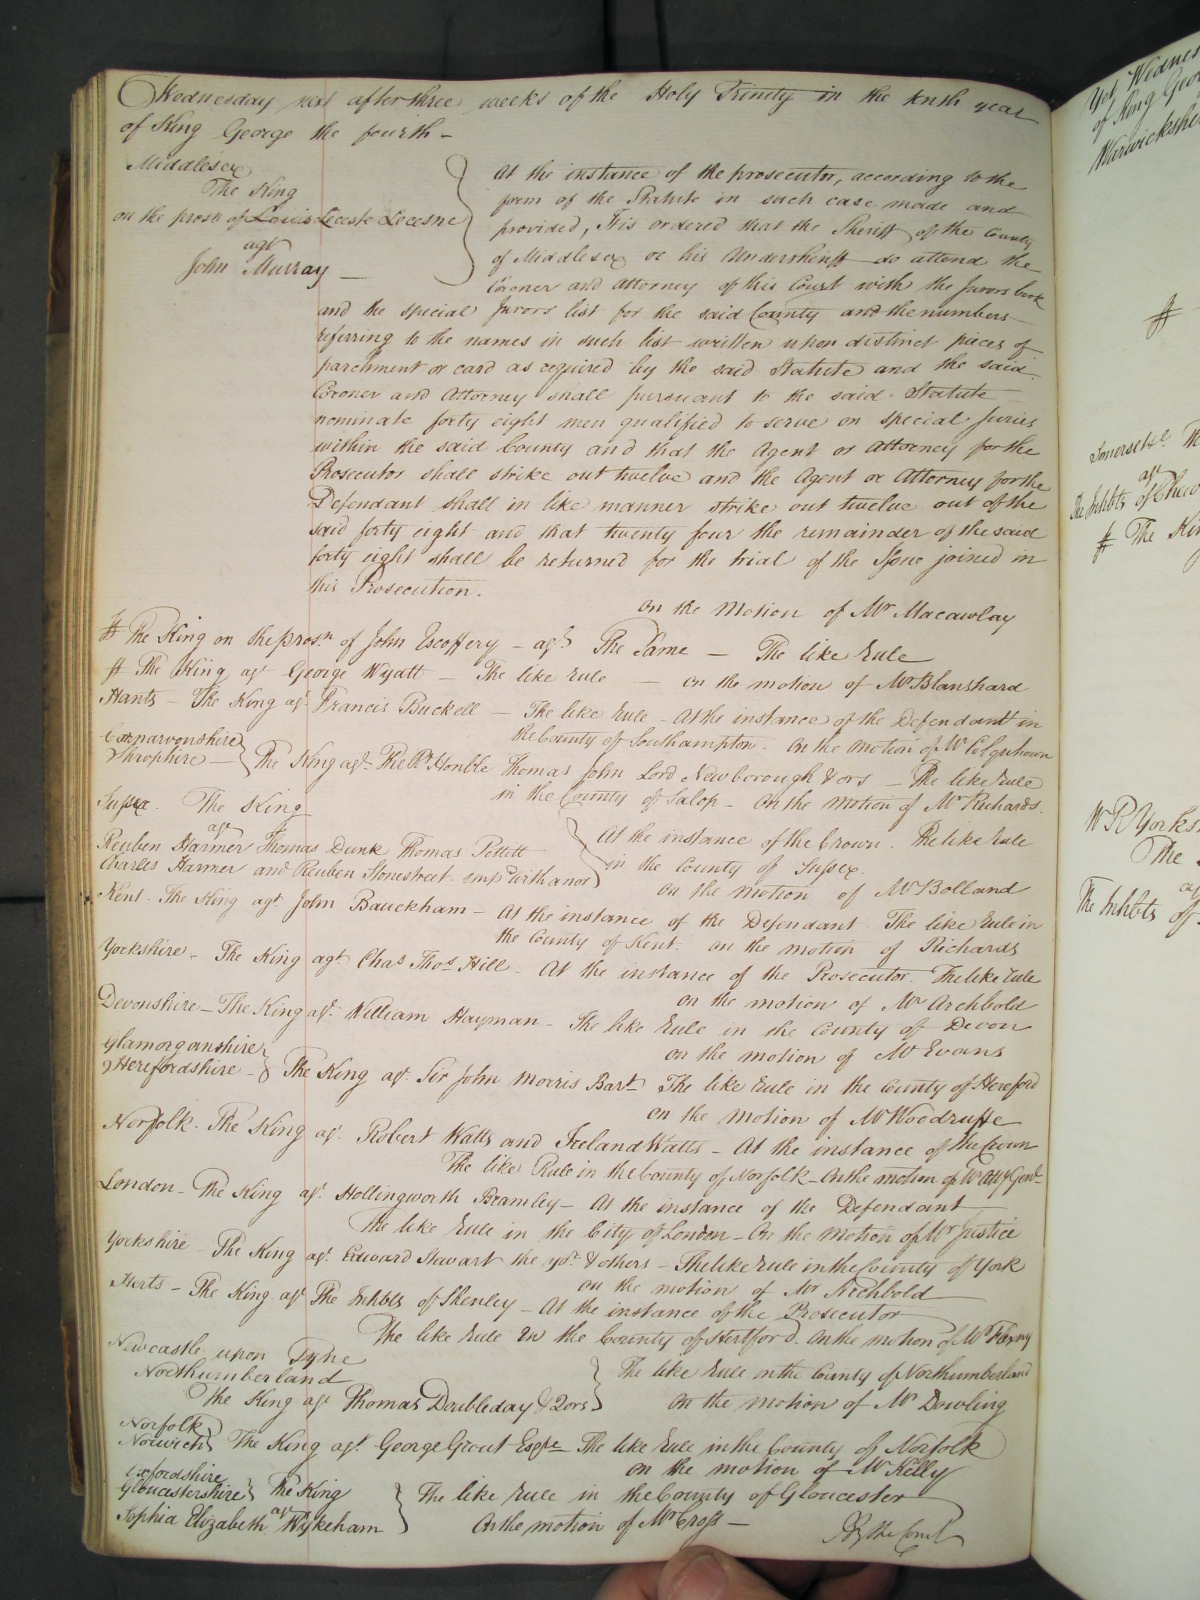 Wednesday next after three weeks of the Holy Trinity in the tenth year
of King George the fourth —
Middlesex
The King
on the prosn of Louis Celeste Lecesne
agt
John Murray —
At the instance of the prosecutor, according to the
form of the Statute in such case made and
provided, It is ordered that the Sheriff of the County
of Middlesex or his Undersheriff do attend the
Coroner and Attorney of this Court with the Jurors book
and the special Jurors list for the said County and the numbers
referring to the names in such list written upon distinct pieces of
parchment or card as required by the said Statute and the said
Coroner and Attorney shall pursuant to the said Statute
nominate forty eight men qualified to serve on special Juries
within the said County and that the Agent or Attorney for the
Prosecutor shall strike out twelve and the Agent or Attorney for the
Defendant shall in like manner strike out twelve out of the
said forty eight and that twenty four the remainder of the said
forty eight shall be returned for the trial of the Issue joined in
this Prosecution.
On the Motion of Mr Macawlay
# The King on the prosn of John Escoffery — agt The Same — The like Rule
# The King agt George Wyatt — The like rule — on the motion of Mr Blanshard
Hants — The King agt Francis Buckell — The like Rule — At the instance of the Defendant in
the County of Southampton. On the motion of Mr
Carnarvonshire
Shropshire — The King agt The Rt Honble Thomas John Lord Newborough & ors — The like Rule
in the County of Salop — On the Motion of Mr Richards.
Sussex. The King
agt
Reuben Harmer Thomas Dunk Thomas Pettitt
Charles Harmer and Reuben Stonestreet impd with anor
At the instance of the Crown. The like Rule
in the County of Sussex.
On the motion of Mr Bolland
Kent. The King agt John Bauckham — At the instance of the Defendant The like Rule in
the County of Kent. on the motion of Richards
Yorkshire — The King agt Chas Thos Hill — At the instance of the Prosecutor. The like rule
on the motion of Mr Archbold
Devonshire — The King agt William Hayman — The like Rule in the County of Devon
on the motion of Mr Evans
Glamorganshire
Herefordshire — The King agt Sir John Morris Bart The like Rule in the County of Hereford
on the motion of Mr Woodruffe
Norfolk. The King agt Robert Watts and Ireland Watts — At the instance of the Crown
The like Rule in the County of Norfolk — On the motion of Mr Atty Genl
London — The King agt Hollingworth Bramley — At the instance of the Defendant
The like Rule in the City of London — On the Motion of Mr Justice
Yorkshire — The King agt Edward Stewart the yor & others — The like Rule in the County of York
on the motion of Mr Archbold
Herts — The King agt The Inhbts of Shenley — At the instance of the Prosecutor
The like Rule In the County of Hertford. On the motion of Mr
Newcastle upon Tyne
Northumberland
The King agt Thomas Doubleday & 2 ors
The like Rule in the County of Northumberland
On the motion of Mr Dowling
Norfolk
Norwich The King agt George Grout Esqre The like Rule in the County of Norfolk
on the motion of Mr Kelly
Oxfordshire
Gloucestershire The King
agt
Sophia Elizabeth Wykeham
The like Rule in the County of Gloucester
On the motion of Mr Cross —
By the Court
Yet Wednes
of King Geor
Warwickshi
#
Somersetse. Th
agt
The Inhbts of Chew
# The Kin
W R Yorksh
The
ag
The Inhbts of